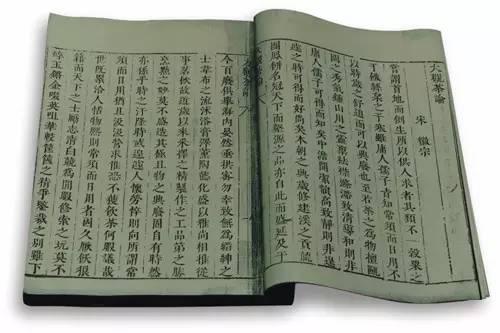 大觀茶論
宋 徽宗
嘗謂首地而倒生所以供人求者其類不一穀粟之
於饑絲枲之於寒雖庸人孺子皆知常須而日用不
以時歲之舒迫而可以興廢也至若茶之為物擅甌
閩之秀氣鍾山川之靈稟祛襟滌滯致清導和則非
庸人孺子可得而知矣中澹閒潔韻高致靜則非遑
遽之時可得而好尚矣本朝之興歲修建溪之貢龍
團鳳餅名冠天下而壑源之品亦自此而盛延及于
大觀茶論
今百廢俱舉海內晏然垂拱密勿幸致無為縉紳之
士韋布之流沐浴膏澤薰陶德化盛以雅尚相推從
事茗飲故近歲以來采擇之精製作之工品第之勝
烹點之妙莫不盛造其極且物之興廢固自有時然
亦係乎時之汙隆時或遑遽人懷勞悴則向所謂常
須而日用猶且汲汲營求惟恐不獲飲茶何暇議哉
世既累洽人恬物熙則常須而日用者固久厭飫狼
籍而天下之士勵志清白競為閒暇修索之玩莫不
碎玉鏘金啜英咀華較筐篋之精爭鑒裁之別雖下